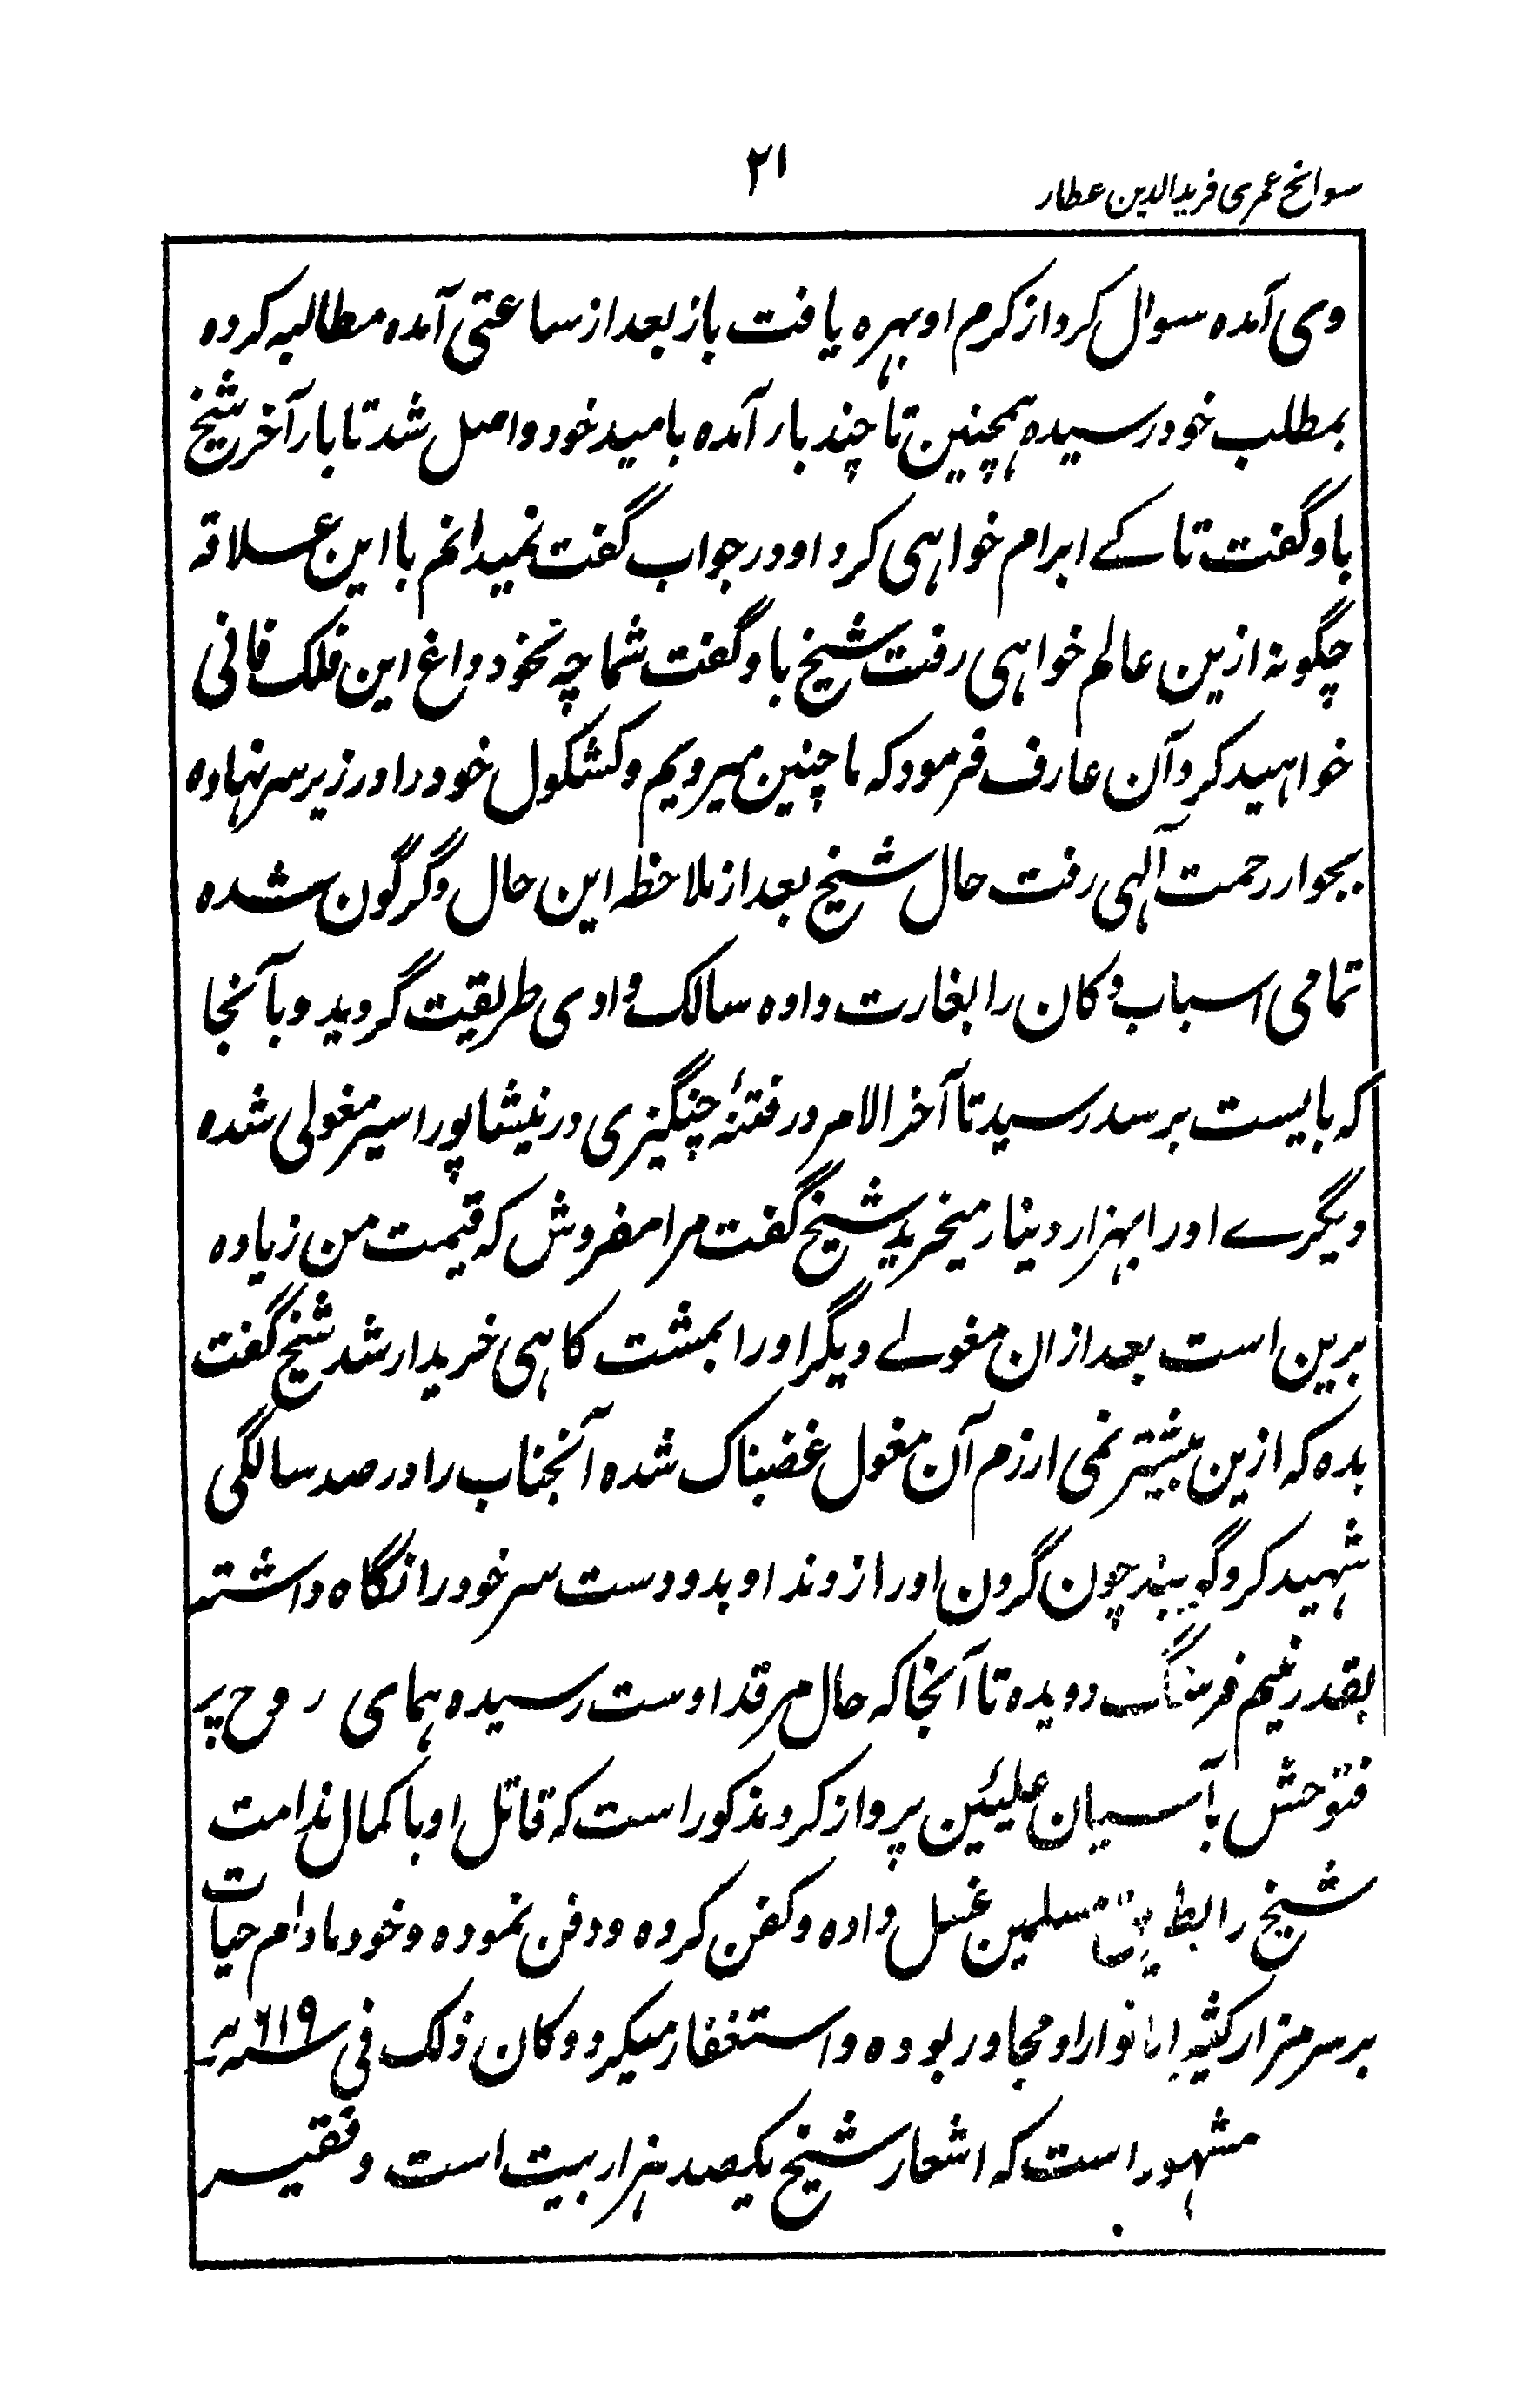 سوانح عمری فریدالدین عطار
۲۱
وی آمده سوال کرد از کرم او بهره یافت باز بعد از ساعتی آمده مطالبه کرده
بمطلب خود رسیده همچنین تا چند بار آمده بامید خود واصل شد تا بار آخر شیخ
باو گفت تا کے ابرام خواهی کرد او در جواب گفت نمیدانم با این علاقه
چگونه ازین عالم خواهی رفت شیخ باو گفت شما چه نحو وداع این فلک فانی
خواهید کرد آن عارف فرمود که ما چنین میرویم و کشکول خود را در زیر سر نهاده
بجوار رحمت الٓهی رفت حال شیخ بعد از ملاحظه این حال دگرگون شده
تمامی اسباب دکان را بغارت داده سالک وادی طریقت گردید و بآنجا
که بایست برسد رسید تا آخر الامر در فتنهٔ چنگیزی در نیشاپور اسیر مغولی شده
دیگرے او را بهزار دینار میخرید شیخ گفت مرا مفروش که قیمت من زیاده
برین است بعد از ان مغولے دیگر او را بمشت کاهی خریدار شد شیخ گفت
بده که ازین بیشتر نمی ارزم آن مغول غضبناک شده آنجناب را در صد سالگی
شهید کرد گویند چون گردن او را زدند او بدو دست سر خود را نگاه داشته
بقدر نیم فرسنگ دویده تا آنجا که حال مرقد اوست رسیده همای روح پر
فتوحش بآسمان علیئین پرواز کرد مذکور است که قاتل او با کمال ندامت
شیخ را بطریقت مسلمین غسل داده و کفن کرده و دفن نموده و خود مادام حیات
بر سر مزار کثیر الانوار او مجاور بوده و استغفار میکرد و کان ذلک فی سنه ۶۱۹
مشهور است که اشعار شیخ یکصد هزار بیت است و فقیر